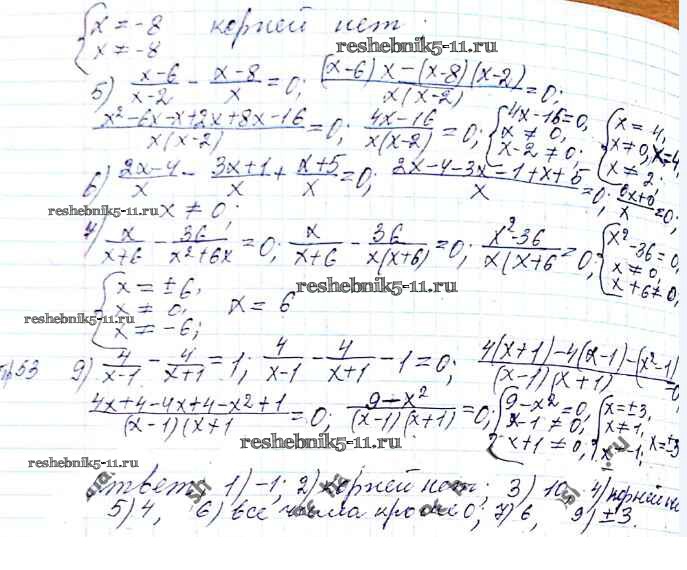 {x = -8   корней нет.
x ≠ -8
reshebnik5-11.ru
5) (x-6)/(x-2) - (x-8)/x = 0; ((x-6)x-(x-8)(x-2))/(x(x-2)) = 0;
(x²-6x-x+2x+8x-16)/(x(x-2)) = 0; (4x-16)/(x(x-2)) = 0; {4x-16=0, x≠0, x-2≠0; {x=4, x≠0, x≠2; x=4,
6) (2x-4)/x - (3x+1)/x + (x+5)/x = 0; (2x-4-3x-1+x+5)/x = 0; (0x+0)/x = 0;
reshebnik5-11.ru x ≠ 0;
7) x/(x+6) - 36/(x²+6x) = 0; x/(x+6) - 36/(x(x+6)) = 0; (x²-36)/(x(x+6) = 0; {x²-36=0, x≠0, x+6≠0;
reshebnik5-11.ru
{x = ±6, x ≠ 0, x ≠ -6; x = 6
reshebnik5-11.ru
53 9) 4/(x-1) - 4/(x+1) = 1; 4/(x-1) - 4/(x+1) - 1 = 0; (4(x+1)-4(x-1)-(x²-1))/((x-1)(x+1)) = 0
(4x+4-4x+4-x²+1)/((x-1)(x+1) = 0; (9-x²)/((x-1)(x+1)) = 0; {9-x²=0, x-1≠0, x+1≠0; {x=±3, x≠1, x≠-1; x=±3
reshebnik5-11.ru
Ответ: 1) -1; 2) корней нет; 3) 10, 4) корней не
5) 4, 6) все числа кроме 0; 7) 6, 9) ±3.
reshebnik5-11.ru